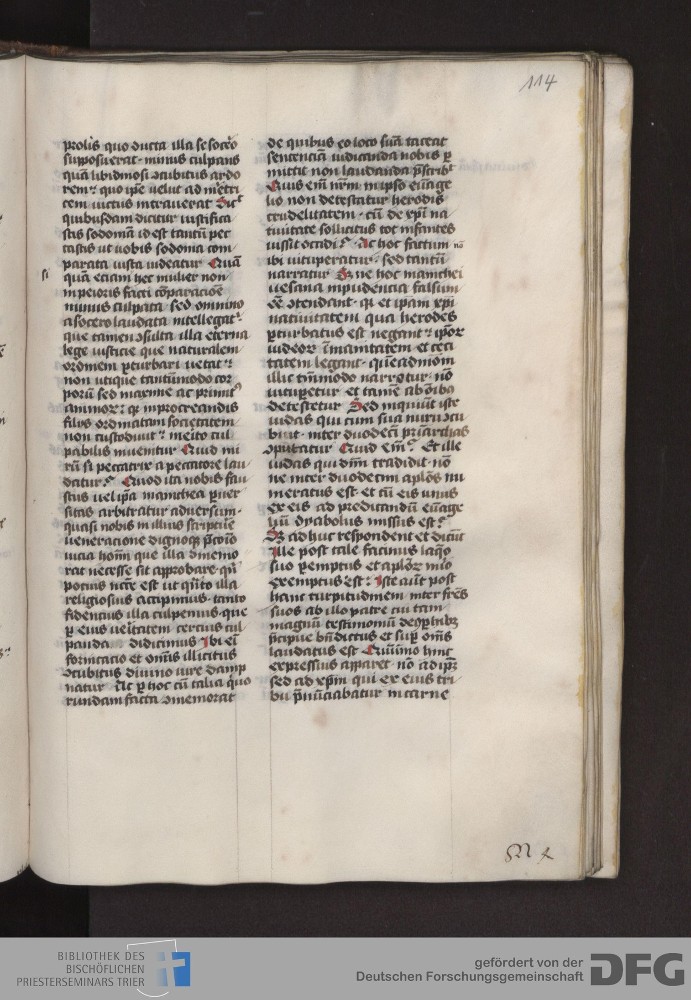 114
prolis quo ducta illa se soceo
supposuerat · minus culpans
quā libidinosi ɔcubitus ardo
rem · quo ip̄e velut ad meretri
cem victus intraverat Sic
quibusdam dicitur iustifica
stis sodomā id est tantū pec
castis ut vobis sodoma com
parata iusta videatur Quā
quā etiam hec mulier non
si
in peioris facti cōparacione
minus culpata sed omnino
a socero laudata intellegat᷒
que tamen ɔsulta illa eterna
lege iusticie que naturalem
ordinem p̱turbari vetat
non utique tantūmodo cor
porū sed maxime ac primit᷒
animor q̄ in procreandis
filiis ordinatam societatem
non custodivit merito cul
pabilis invenitur Quid mi
rū si peccatrix a peccatore lau
datur Quod ita nobis fau
stus vel ip̄a manichea p̱ver
sitas arbitratur adversum
quasi nobis in illius scripture
veneratione dignoq̄ p̄conio
vicia hoīm que illa ɔmemo
rat necesse sit approbare · qn̄
potius ncēe est ut qn̄to illa
religiosius accipimus · tanto
fidentius illa culpemus · que
p̱ eius veītatem cercius cul
panda didicimus Ibi ei
fornicacio et om̄is illicitus
ɔcubitus divino iure damp
natur Ac p̱ hoc cū talia quo
rundam facta ɔmemorat
de quibus eo loco suā taceat
sentenciā iudicanda nobis p̱
mittit non laudanda
Quis em̄ nr̄m in ipso evāge
lio non detestatur herodis
crudelitatem · cū de xp̄i na
tivitate sollicitus tot infantes
iussit occidi · At hoc factum nō
ibi vituperatur · sed tantū
narratur S ne hoc manichei
vesana inpudencia falsum
ēē ɔtendant · qi et ipam xp̄i
nativitatem qua herodes
p̱turbatus est negant ipōr
iudeor īmanitatem et ceci
tatem legant · quēadmom
illic tm̄modo narrotur · nō
vitup̱etur et tamē ab oībo
detestetur Sed inquiūt iste
iudas qui cum sua nuru ɔcu
buit · inter duodecī priarchas
ɔputatur Quid em̄ Et ille
iudas qui dn̄m tradidit · nō
ne inter duodecim aplōs nu
meratus est et cū eis unus
ex eis ad predicandū evāge
liū
S ad huc respondent et dicūt
Ille post tale facinus laq̄o
suo p̱emptus et aplōr nūo
exemptus est Iste aūt post
hanc turpitudinem inter frēs
suos ab illo patre cui tam
magnū testimoniū
p̄cipue bn̄dictus et sup̱ om̄s
laudatus est Quīmo hinc
expressius apparet · nō ad ip̄ꝫ
sed ad xp̄m qui ex eius tri
bu p̄nūciabatur in carne
BIBLIOTHEK DES
BISCHÖFLICHEN
PRIESTERSEMINARS TRIER
gefördert von der
Deutschen Forschungsgemeinschaft
DFG